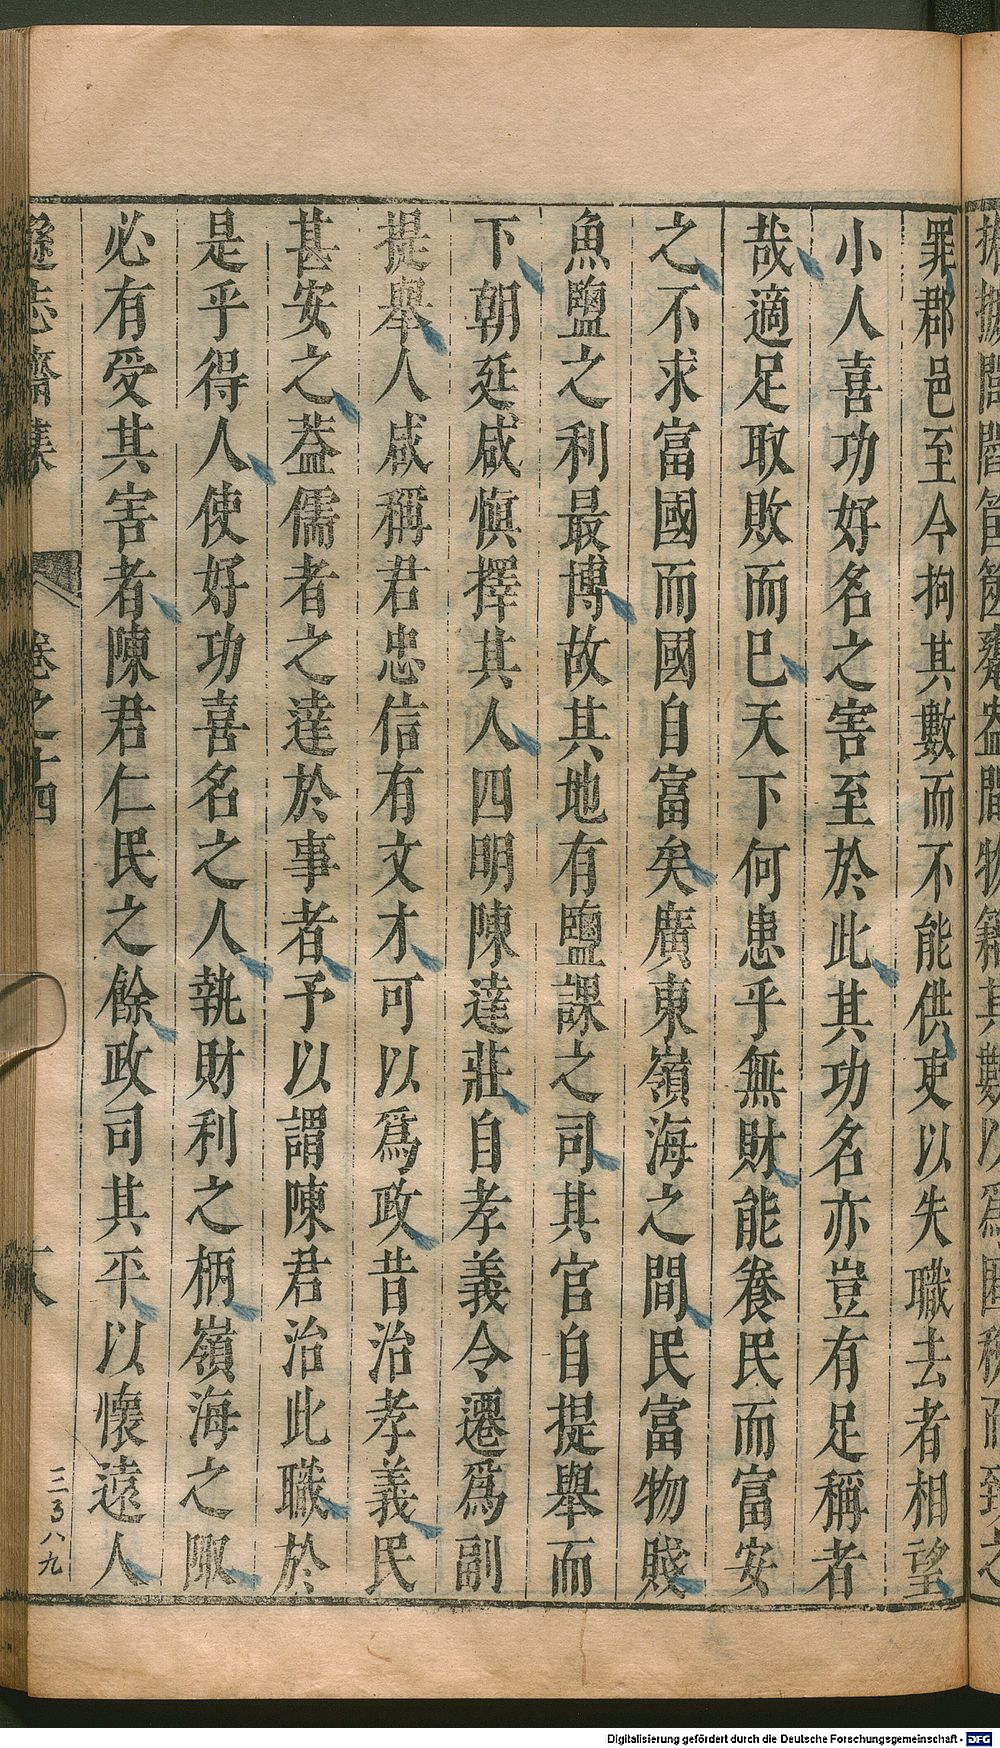 罪郡邑至今拘其數而不能供吏以失職去者相望
小人喜功好名之害至於此其功名亦豈有足稱者
哉適足取敗而已天下何患乎無財能養民而富安
之不求富國而國自富矣廣東嶺海之間民富物賤
魚鹽之利最博故其地有鹽課之司其官自提舉而
下朝延咸慎擇其人四明陳達莊自孝義令遷爲副
提舉人咸稱君忠信有文才可以爲政昔治孝義民
甚安之葢儒者之達於事者予以謂陳君治此職於
是乎得人使好功喜名之人執財利之柄嶺海之陬
必有受其害者陳君仁民之餘政司其平以懷遠人
遜志齋集 卷之十四 十八
三百八九
Digitalisierung gefördert durch die Deutsche Forschungsgemeinschaft - DFG